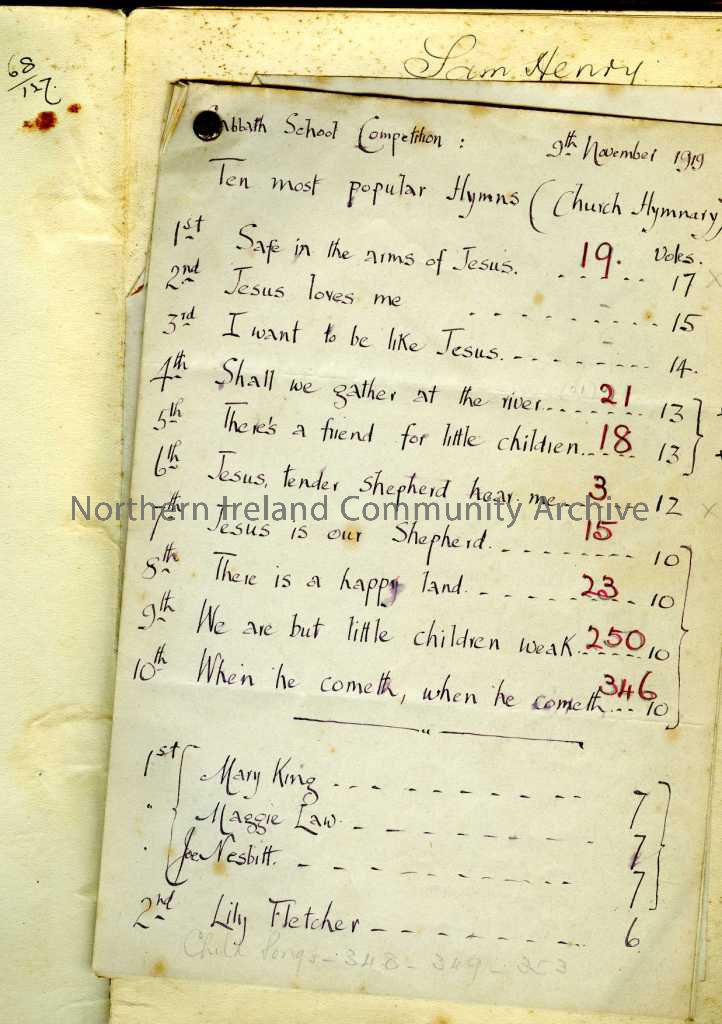 68/127.
Sam Henry
Sabbath School Competition : 9th November 1919
Ten most popular Hymns (Church Hymnary)
Votes.
1st Safe in the arms of Jesus. 19. 17
2nd Jesus loves me 15
3rd I want to be like Jesus. 14.
4th Shall we gather at the river 21 13
5th There's a friend for little children 18 13
6th Jesus, tender shepherd hear me 3. 12
Northern Ireland Community Archive
7th Jesus is our Shepherd. 15 10
8th There is a happy land. 23 10
9th We are but little children weak 250 10
10th When he cometh, when he cometh 346 10
1st Mary King 7
" Maggie Law 7
" Joe Nesbitt. 7
2nd Lily Fletcher 6
Child Songs - 348 - 349 - 353